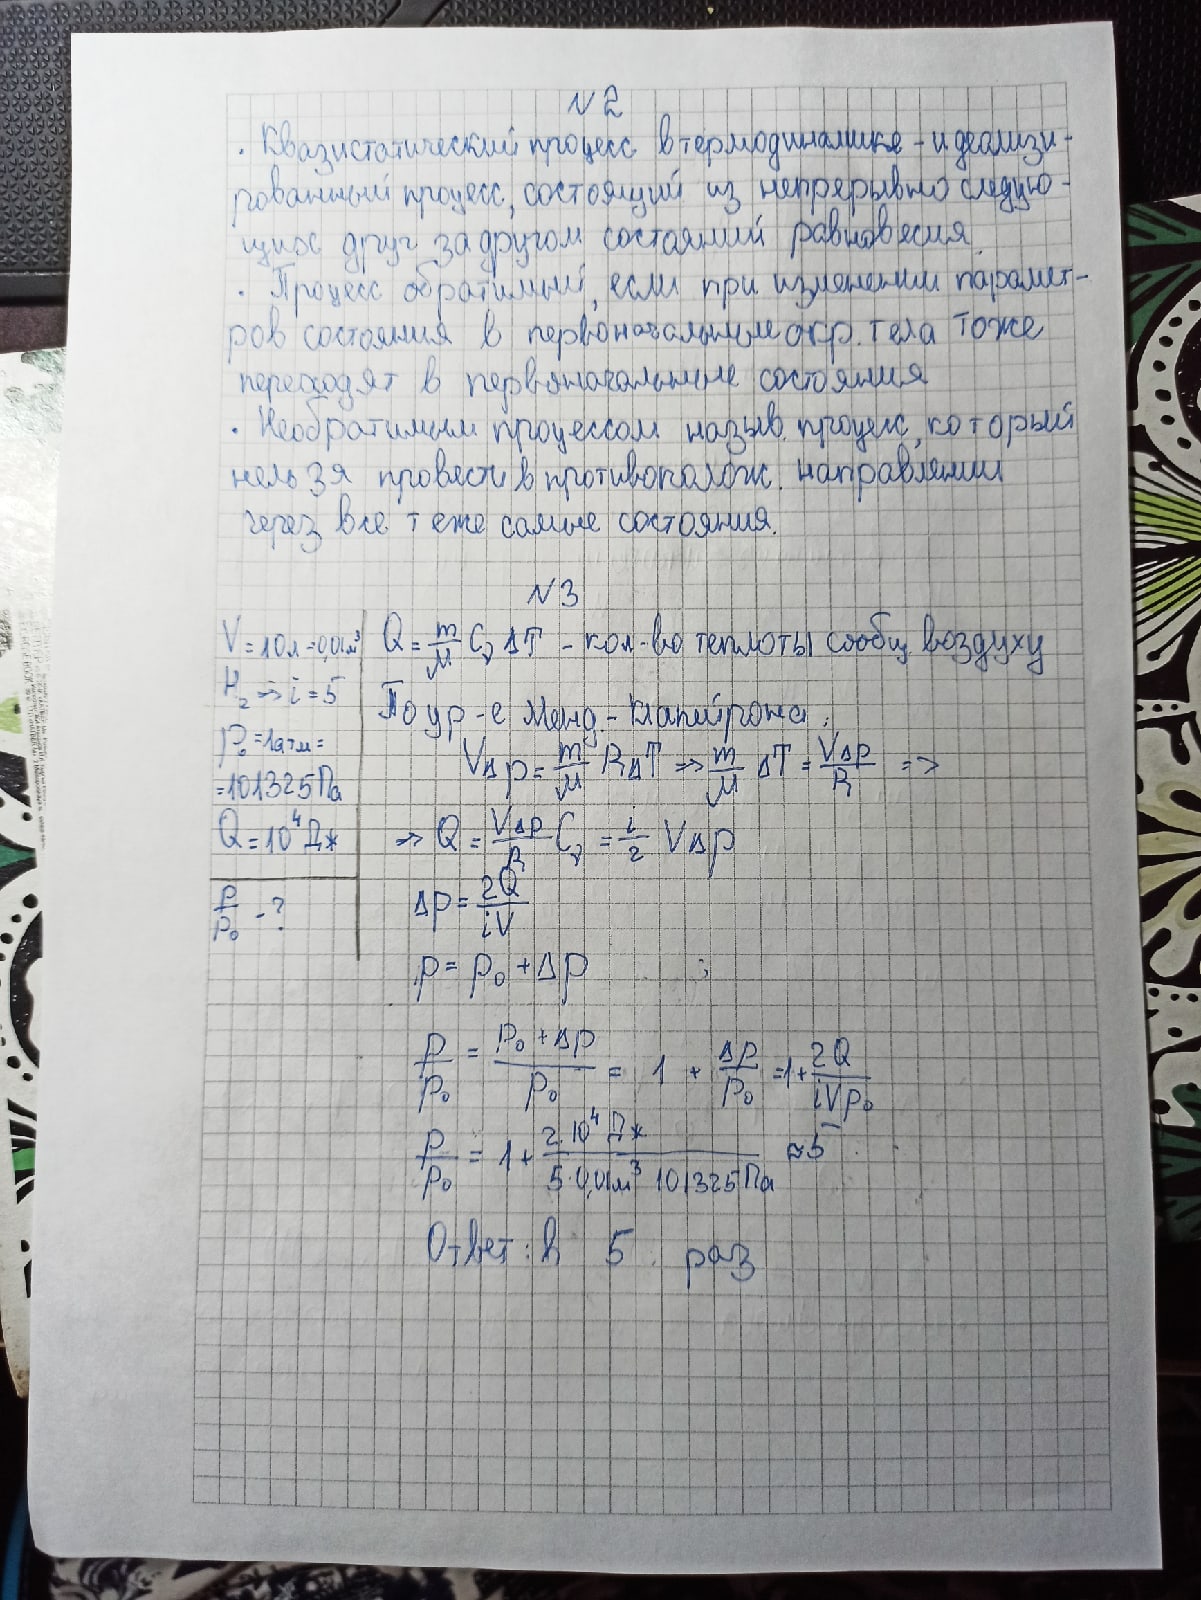 N2
· Квазистатический процесс в термодинамике - идеализи-
рованный процесс, состоящий из непрерывно следую-
щих друг за другом состояний равновесия.
· Процесс обратимый, если при изменении парамет-
ров состояния в первоначальные окр. тела тоже
переходят в первоначальные состояния
· Необратимым процессом назыв. процесс, который
нельзя провести в противополож. направлении
через все те же самые состояния.
N3
V = 10л = 0,01м³
H₂ => i = 5
p₀ = 1атм =
= 101325 Па
Q = 10⁴ Дж
p/p₀ - ?
Q = m/M Cᵥ ΔT - кол-во теплоты сообщ воздуху
По ур-е Менд.-Клапейрона:
VΔp = m/M RΔT => m/M ΔT = VΔp/R =>
=> Q = VΔp/R Cᵥ = i/2 VΔp
Δp = 2Q/iV
p = p₀ + Δp ;
p/p₀ = (p₀ + Δp)/p₀ = 1 + Δp/p₀ = 1 + 2Q/iVp₀
p/p₀ = 1 + 2·10⁴ Дж/5·0,01м³·101325 Па ≈ 5
Ответ: в 5 раз